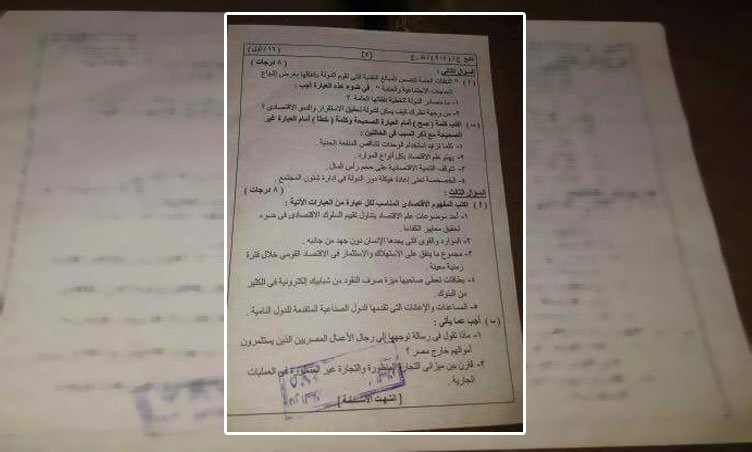 تابع [٢٠٢]/ث.ع/ح (٢) (١٢/أول)
السؤال الثاني : ( ٨ درجات )
( أ ) " النفقات العامة تتضمن المبالغ النقدية التى تقوم الدولة بإنفاقها بغرض إشباع
الحاجات الاجتماعية والعامة " . فى ضوء هذه العبارة أجب :
١- ما مصادر الدولة لتغطية نفقاتها العامة ؟
٢- من وجهة نظرك كيف يمكن للدولة تحقيق الاستقرار والنمو الاقتصادى ؟
(ب) اكتب كلمة ( صح ) أمام العبارة الصحيحة وكلمة ( خطأ ) أمام العبارة غير
الصحيحة مع ذكر السبب فى الحالتين :
١- كلما تزايد استخدام الوحدات تتناقص المنفعة الحدية .
٢- يهتم علم الاقتصاد بكل أنواع الموارد .
٣- تتوقف التنمية الاقتصادية على حجم رأس المال .
٤- الخصخصة تعنى إعادة هيكلة دور الدولة فى إدارة شئون المجتمع .
السؤال الثالث : ( ٨ درجات )
( أ ) اكتب المفهوم الاقتصادى المناسب لكل عبارة من العبارات الآتية :
١- أحد موضوعات علم الاقتصاد يتناول تقييم السلوك الاقتصادى فى ضوء
تحقيق معايير الكفاءة .
٢- الموارد والقوى التى يجدها الإنسان دون جهد من جانبه .
٣- مجموع ما ينفق على الاستهلاك والاستثمار فى الاقتصاد القومى خلال فترة
زمنية معينة .
٤- بطاقات تعطى صاحبها ميزة صرف النقود من شبابيك إلكترونية فى الكثير
من البنوك .
٥- المساعدات والإعانات التى تقدمها الدول الصناعية المتقدمة للدول النامية .
(ب) أجب عما يأتى :
١- ماذا تقول فى رسالة توجهها إلى رجال الأعمال المصريين الذين يستثمرون
أموالهم خارج مصر ؟
٢- قارن بين ميزانى التجارة المنظورة والتجارة غير المنظورة فى العمليات
الجارية .
[ انتهت الأسئلة ]